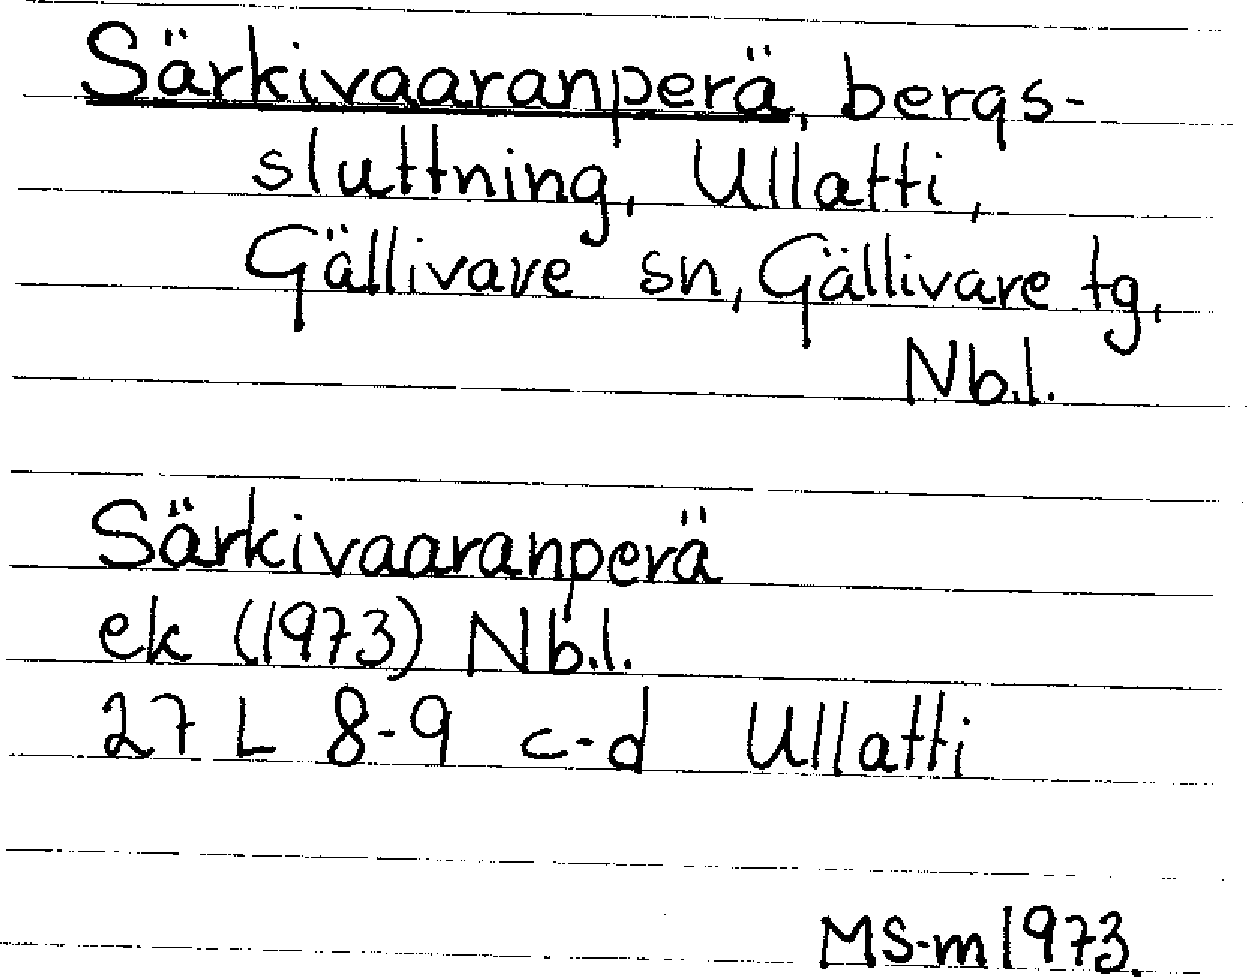 Särkivaaranperä, bergs-
sluttning, Ullatti,
Gällivare sn, Gällivare tg,
Nb.l.
Särkivaaranperä
ek (1973) Nb.l.
27 L 8-9 c-d Ullatti
MS-m 1973.